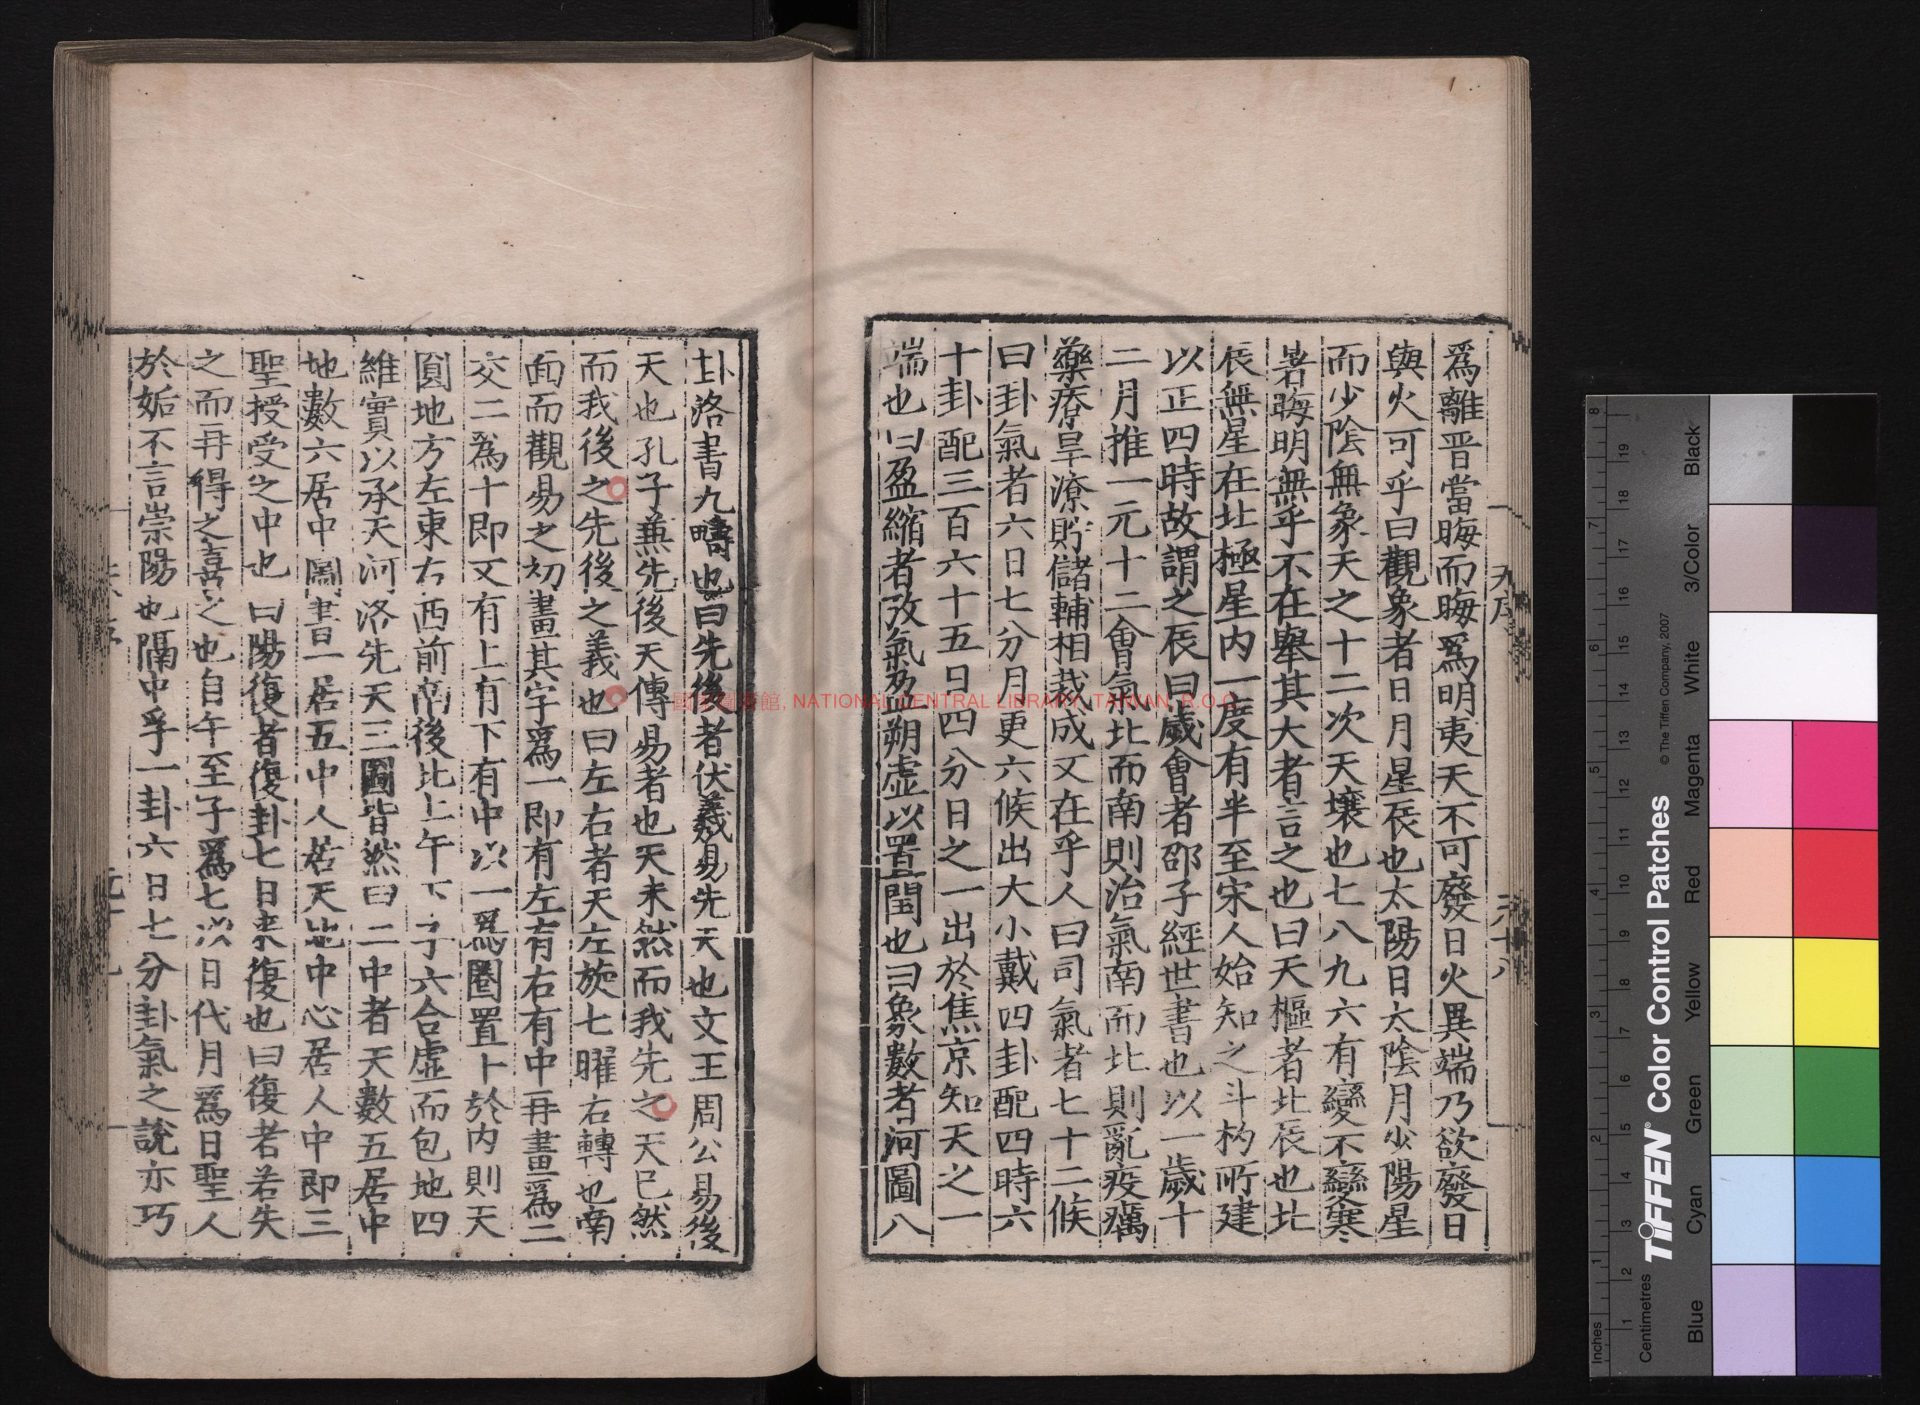 爲離晋當晦而晦爲明夷天不可廢日火異端乃欲廢日
與火可乎曰觀象者日月星辰也太陽日太陰月少陽星
而少陰無象天之十二次天壤也七八九六有變不變寒
暑晦明無乎不在舉其大者言之也曰天樞者北辰也北
辰無星在北極星内一度有半至宋人始知之斗杓所建
以正四時故謂之辰曰歲會者邵子經世書也以一歲十
二月推一元十二會氣北而南則治氣南而北則亂疫癘
藥療旱潦貯儲輔相裁成又在乎人曰司氣者七十二候
曰卦氣者六日七分月更六候出大小戴四卦配四時六
十卦配三百六十五日四分日之一出於焦京知天之一
端也曰盈縮者攷氣盈朔虚以置閏也曰象數者河圖八
卦洛書九疇也曰先後者伏羲易先天也文王周公易後
天也孔子兼先後天傳易者也天未然而我先之天已然
而我後之先後之義也曰左右者天左旋七曜右轉也南
面而觀易之初畫其字爲一即有左有右有中再畫爲二
交二爲十即又有上有下有中以一爲圈置卜於内則天
圓地方左東右西前南後北上午下子六合虛而包地四
維實以承天河洛先天三圖皆然曰二中者天數五居中
地數六居中圖書一居五中人居天地中心居人中即三
聖授受之中也曰陽復者復卦七日来復也曰復者若失
之而再得之喜之也自午至子爲七以日代月爲日聖人
於姤不言崇陽也隔中孚一卦六日七分卦氣之說亦巧
六十八
國家圖書館, NATIONAL CENTRAL LIBRARY, TAIWAN, R.O.C
Inches
Centimetres
TIFFEN® Color Control Patches
© The Tiffen Company, 2007
Blue
Cyan
Green
Yellow
Red
Magenta
White
3/Color
Black